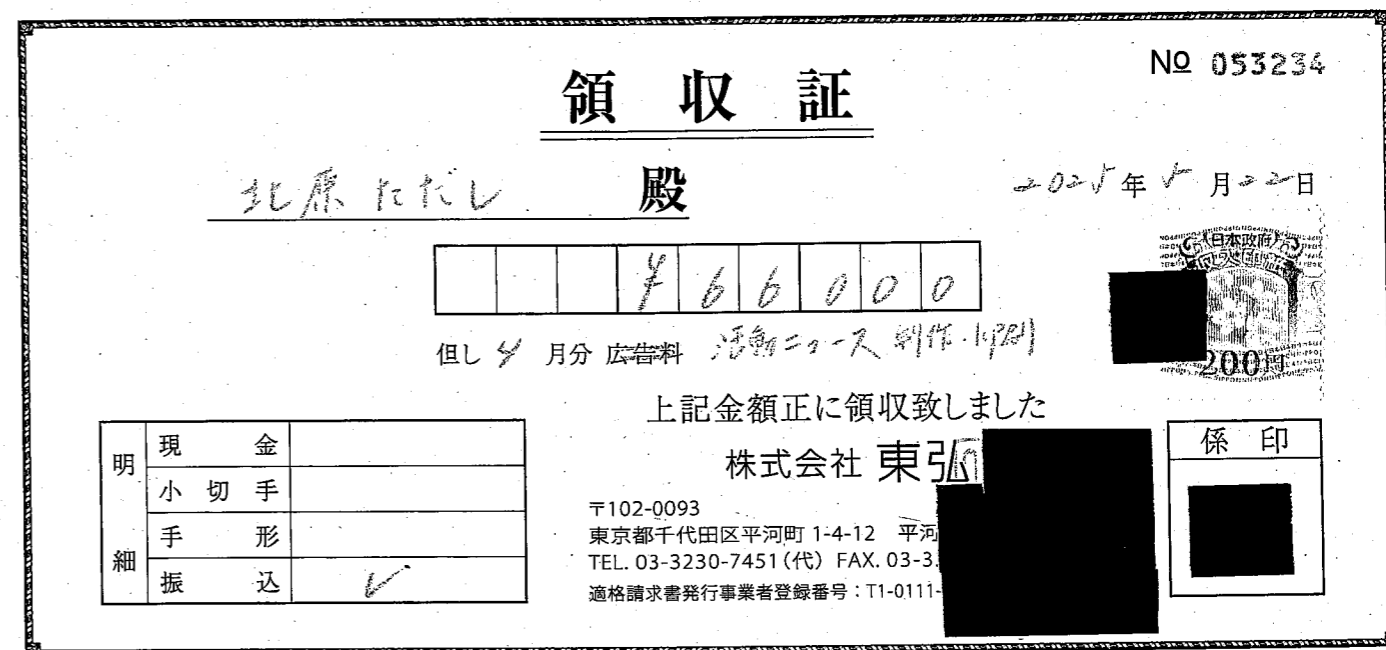 No 053234
領収証
北原ただし 殿
2025年5月22日
日本政府
200円
¥66000
但し 4 月分 広告料 活動ニュース 制作・印刷
上記金額正に領収致しました
株式会社 東弘
〒102-0093
東京都千代田区平河町 1-4-12 平河
TEL. 03-3230-7451(代) FAX. 03-3
適格請求書発行事業者登録番号:T1-0111-
明細
現金
小切手
手形
振込 ✓
係印